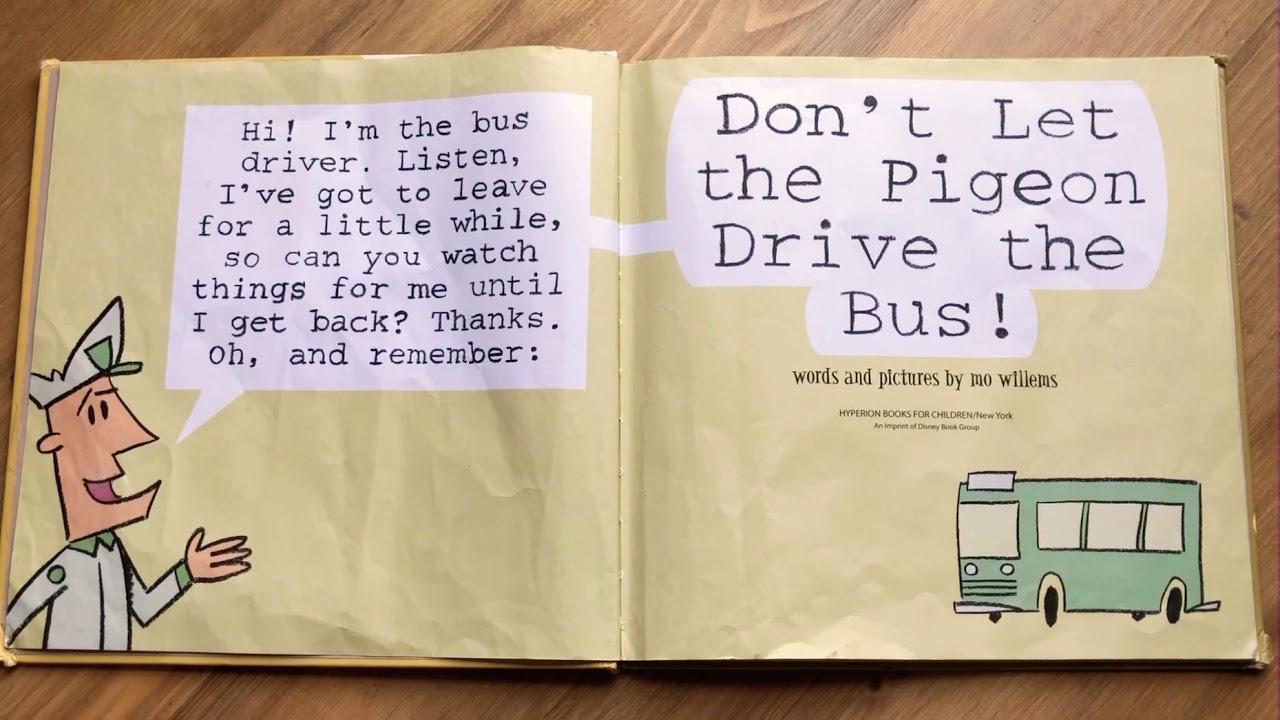 Hi! I'm the bus
driver. Listen,
I've got to leave
for a little while,
so can you watch
things for me until
I get back? Thanks.
Oh, and remember:
Don't Let
the Pigeon
Drive the
Bus!
words and pictures by mo willems
HYPERION BOOKS FOR CHILDREN/New York
An Imprint of Disney Book Group